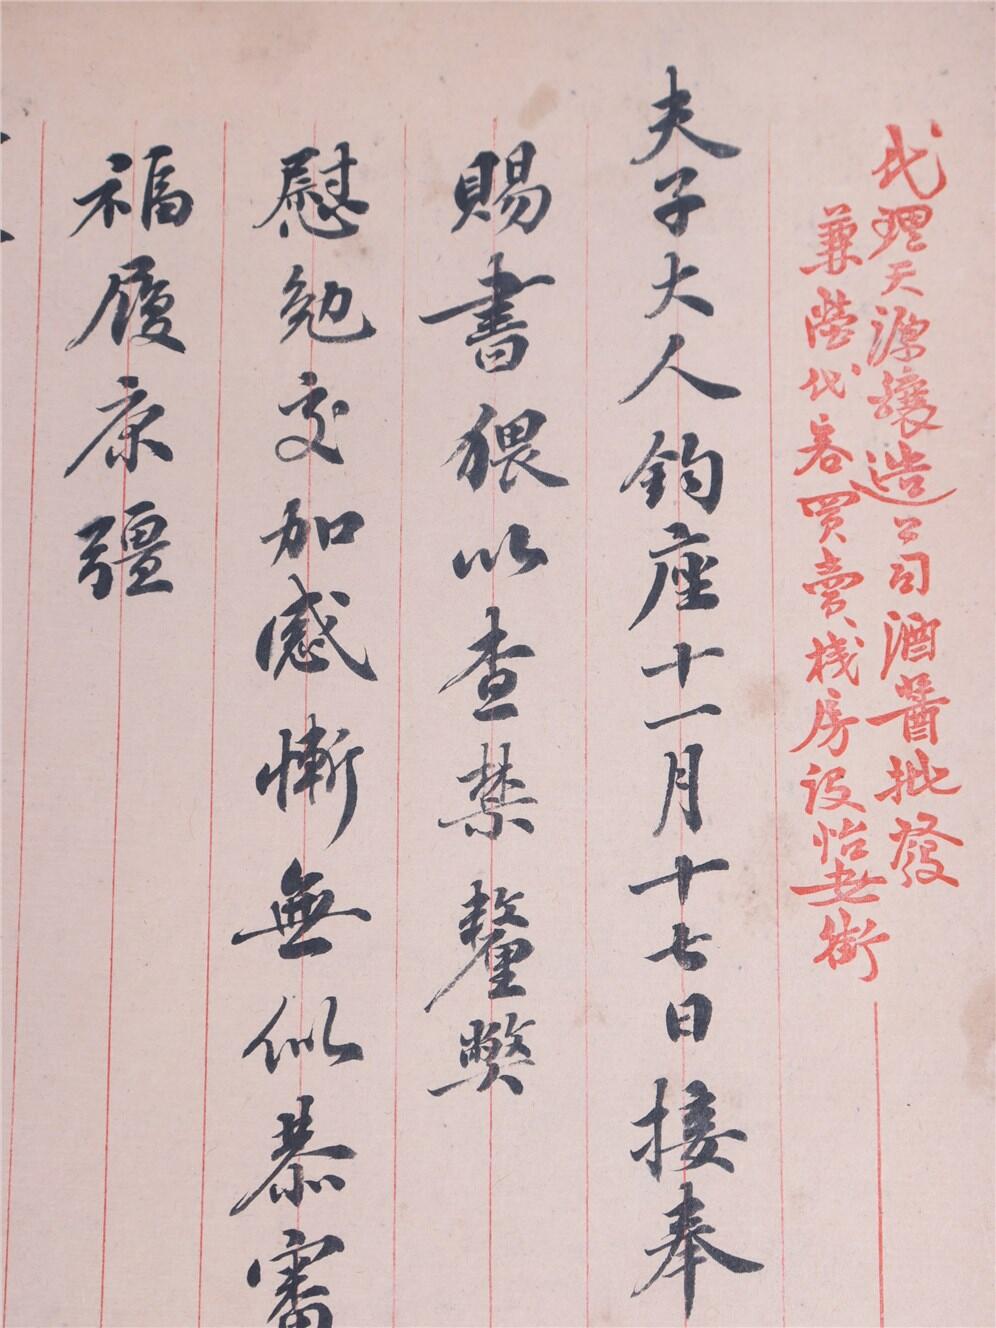 代理天源釀造公司酒醬批發
兼營代客買賣棧房設怡世街
夫子大人鈞座十一月十七日接奉
賜書猥以查禁釐弊
慰勉交加感慚無似恭審
福履康彊